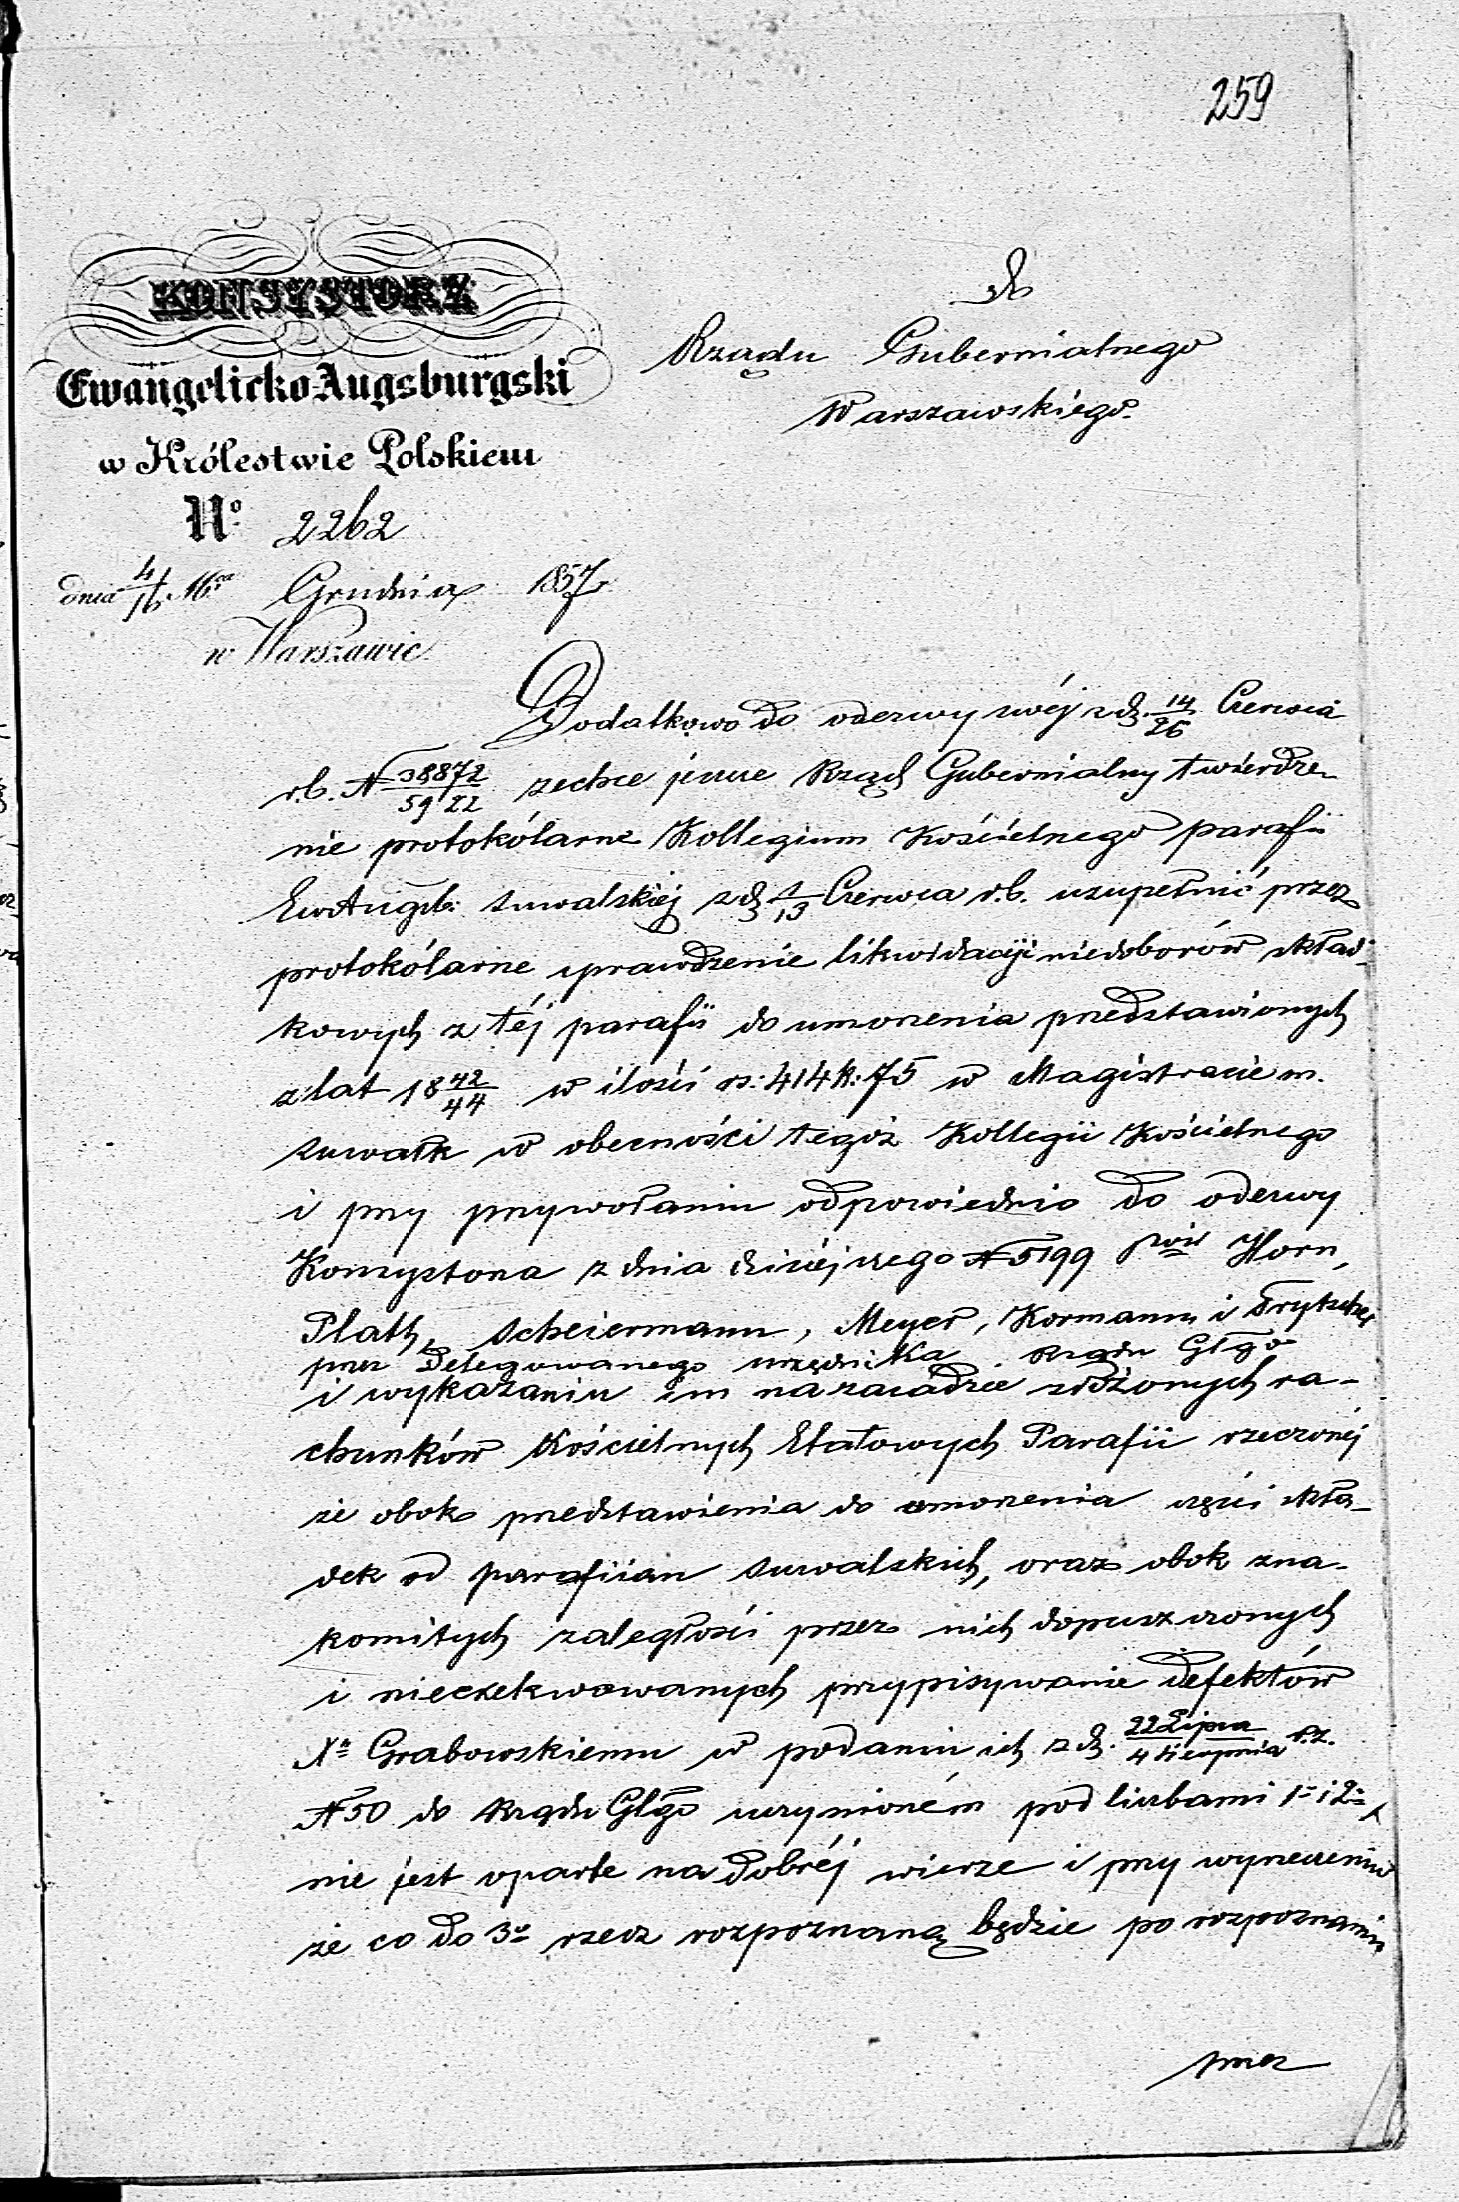 259
KONSYSTORZ
Ewangelicko-Augsburgski
w Królestwie Polskiem
No. 2262
dnia 4/16 Grudnia 1857
w Warszawie
Do
Rządu Gubernialnego
Warszawskiego.
Dodatkowo do odezwy swéj z d. 14/26 Czerwca
r.b. N 38872/5922 zechce jeszcze Rząd Gubernialny twierdze-
nie protokólarne Kollegium Kościelnego parafii
Ew Augsb: Suwalskiéj z d. 1/13 Czerwca r.b. uzupełnić przez
protokólarne sprawdzenie likwidacyi niedoborów skład-
kowych z téj parafii do umorzenia przedstawionych
z lat 18 42/44 w ilości rs: 414 k: 75 w Magistracie m.
Suwałk w obecności tegoż Kollegii Kościelnego
i przy przywołaniu odpowiednio do odezwy
Konsystorza z dnia dzisiéjszego N 5199 Horn,
Plath, Scheiermann, Meyer, Kormann i
przez Delegowanego urzędnika Rządu Glgo
i wykazaniu im na zasadzie złożonych ra-
chunków Kościelnych Etatowych Parafii rzeczonéj
że obok przedstawienia do umorzenia części skła-
dek od parafiian Suwalskich, oraz obok zna-
komitych zaległości przez nich dopuszczonych
i nieexekwowanych przypisywanie defektów
Xa Grabowskiemu w podaniu ich z d. 22 Lipca/4 Sierpnia r.z.
N 50 do Rządu Glgo uczynioném pod liczbami 1 i 2
nie jest oparte na dobréj wierze i przy wyrzeczeniu
że co do 3o rzecz rozpoznaną będzie po rozpoznaniu
przez